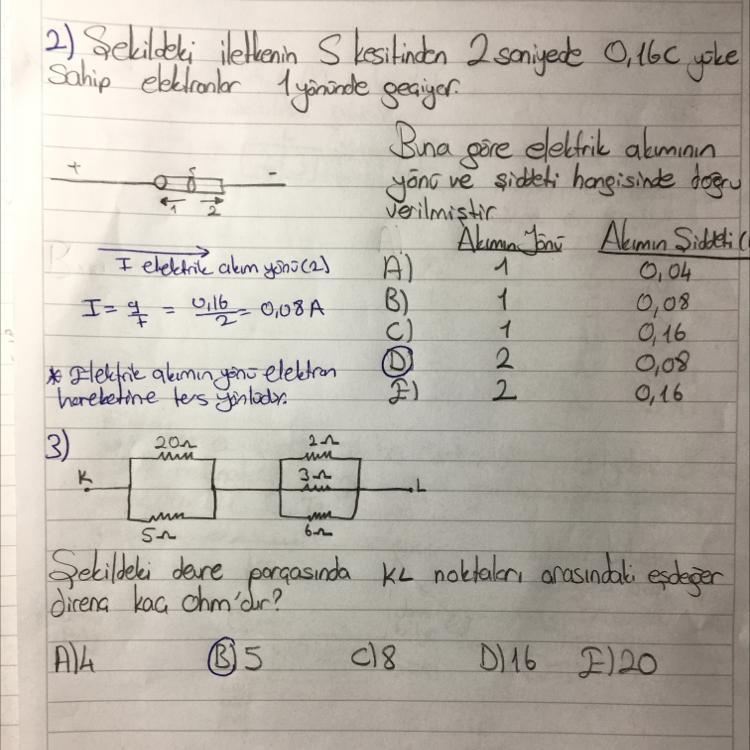 2) Şekildeki iletkenin S kesitinden 2 saniyede 0,16C yüke
sahip elektronlar 1 yönünde geçiyor.
+ S -
1 2
Buna göre elektrik akımının
yönü ve şiddeti hangisinde doğru
verilmiştir
Akımın Yönü Akımın Şiddeti (
A) 1 0,04
B) 1 0,08
C) 1 0,16
D) 2 0,08
E) 2 0,16
I elektrik akım yönü (2)
I = q/t = 0,16/2 = 0,08 A
* Elektrik akımın yönü elektron
hareketine ters yönlüdür.
3)
20Ω 2Ω
K 3Ω L
5Ω 6Ω
Şekildeki devre parçasında KL noktaları arasındaki eşdeğer
direnç kaç ohm'dur?
A) 4 B) 5 C) 8 D) 16 E) 20